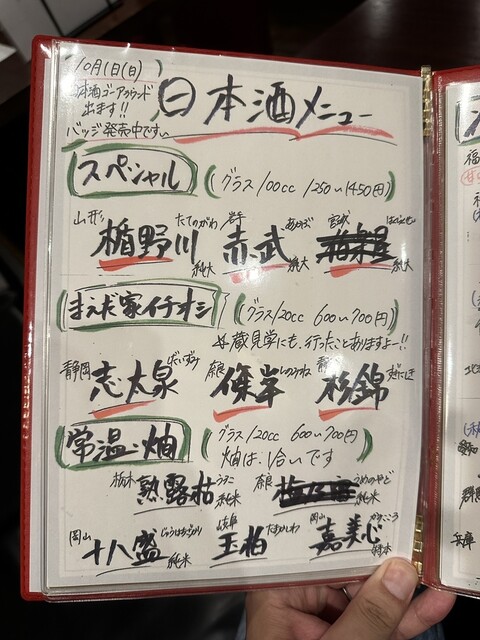 10月1日(日)
日本酒ゴーアラウンド
出ます!!
バッジ発売中です
日本酒メニュー
スペシャル (グラス100cc 1250~1450円)
山形 楯野川 たてのがわ 純大
岩手 赤武 あかぶ 純大
宮城 純大
まえだ家イチオシ (グラス120cc 600~700円)
蔵見学にも、行ったことありますよー!!
静岡 志太泉 しだいずみ
奈良 篠峯 しのみね
静岡 杉錦 すぎにしき
常温・燗 (グラス120cc 600~700円)
燗は、1合いです
栃木 熟露枯 うろこ 純米
奈良 うめのやど 純米
岡山 十八盛 じゅうはちざかり 純米
岐阜 玉柏 たまかしわ
岡山 嘉美心 かみこころ 特本
兵庫